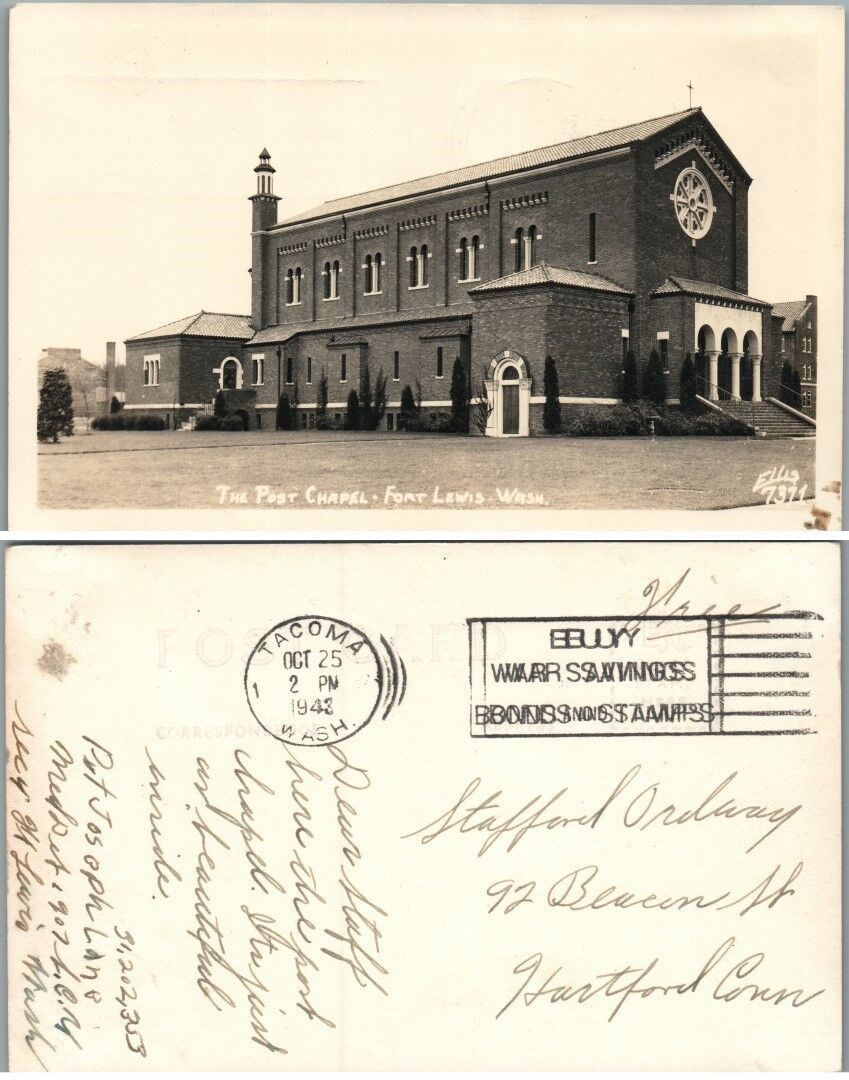 THE POST CHAPEL • FORT LEWIS • WASH.
Ellis
7371
Free
TACOMA
OCT 25
2 PM
1943
WASH.
1
BUY
WAR SAVINGS
BONDS AND STAMPS
POST CARD
CORRESPONDENCE
Dear Staff
here the post
chapel. Its just
as beautiful
inside.
31,202,353
Pvt Joseph Lane
Med Det, 1907
Ft Lewis Wash
Stafford Ordway
92 Beacon St
Hartford Conn